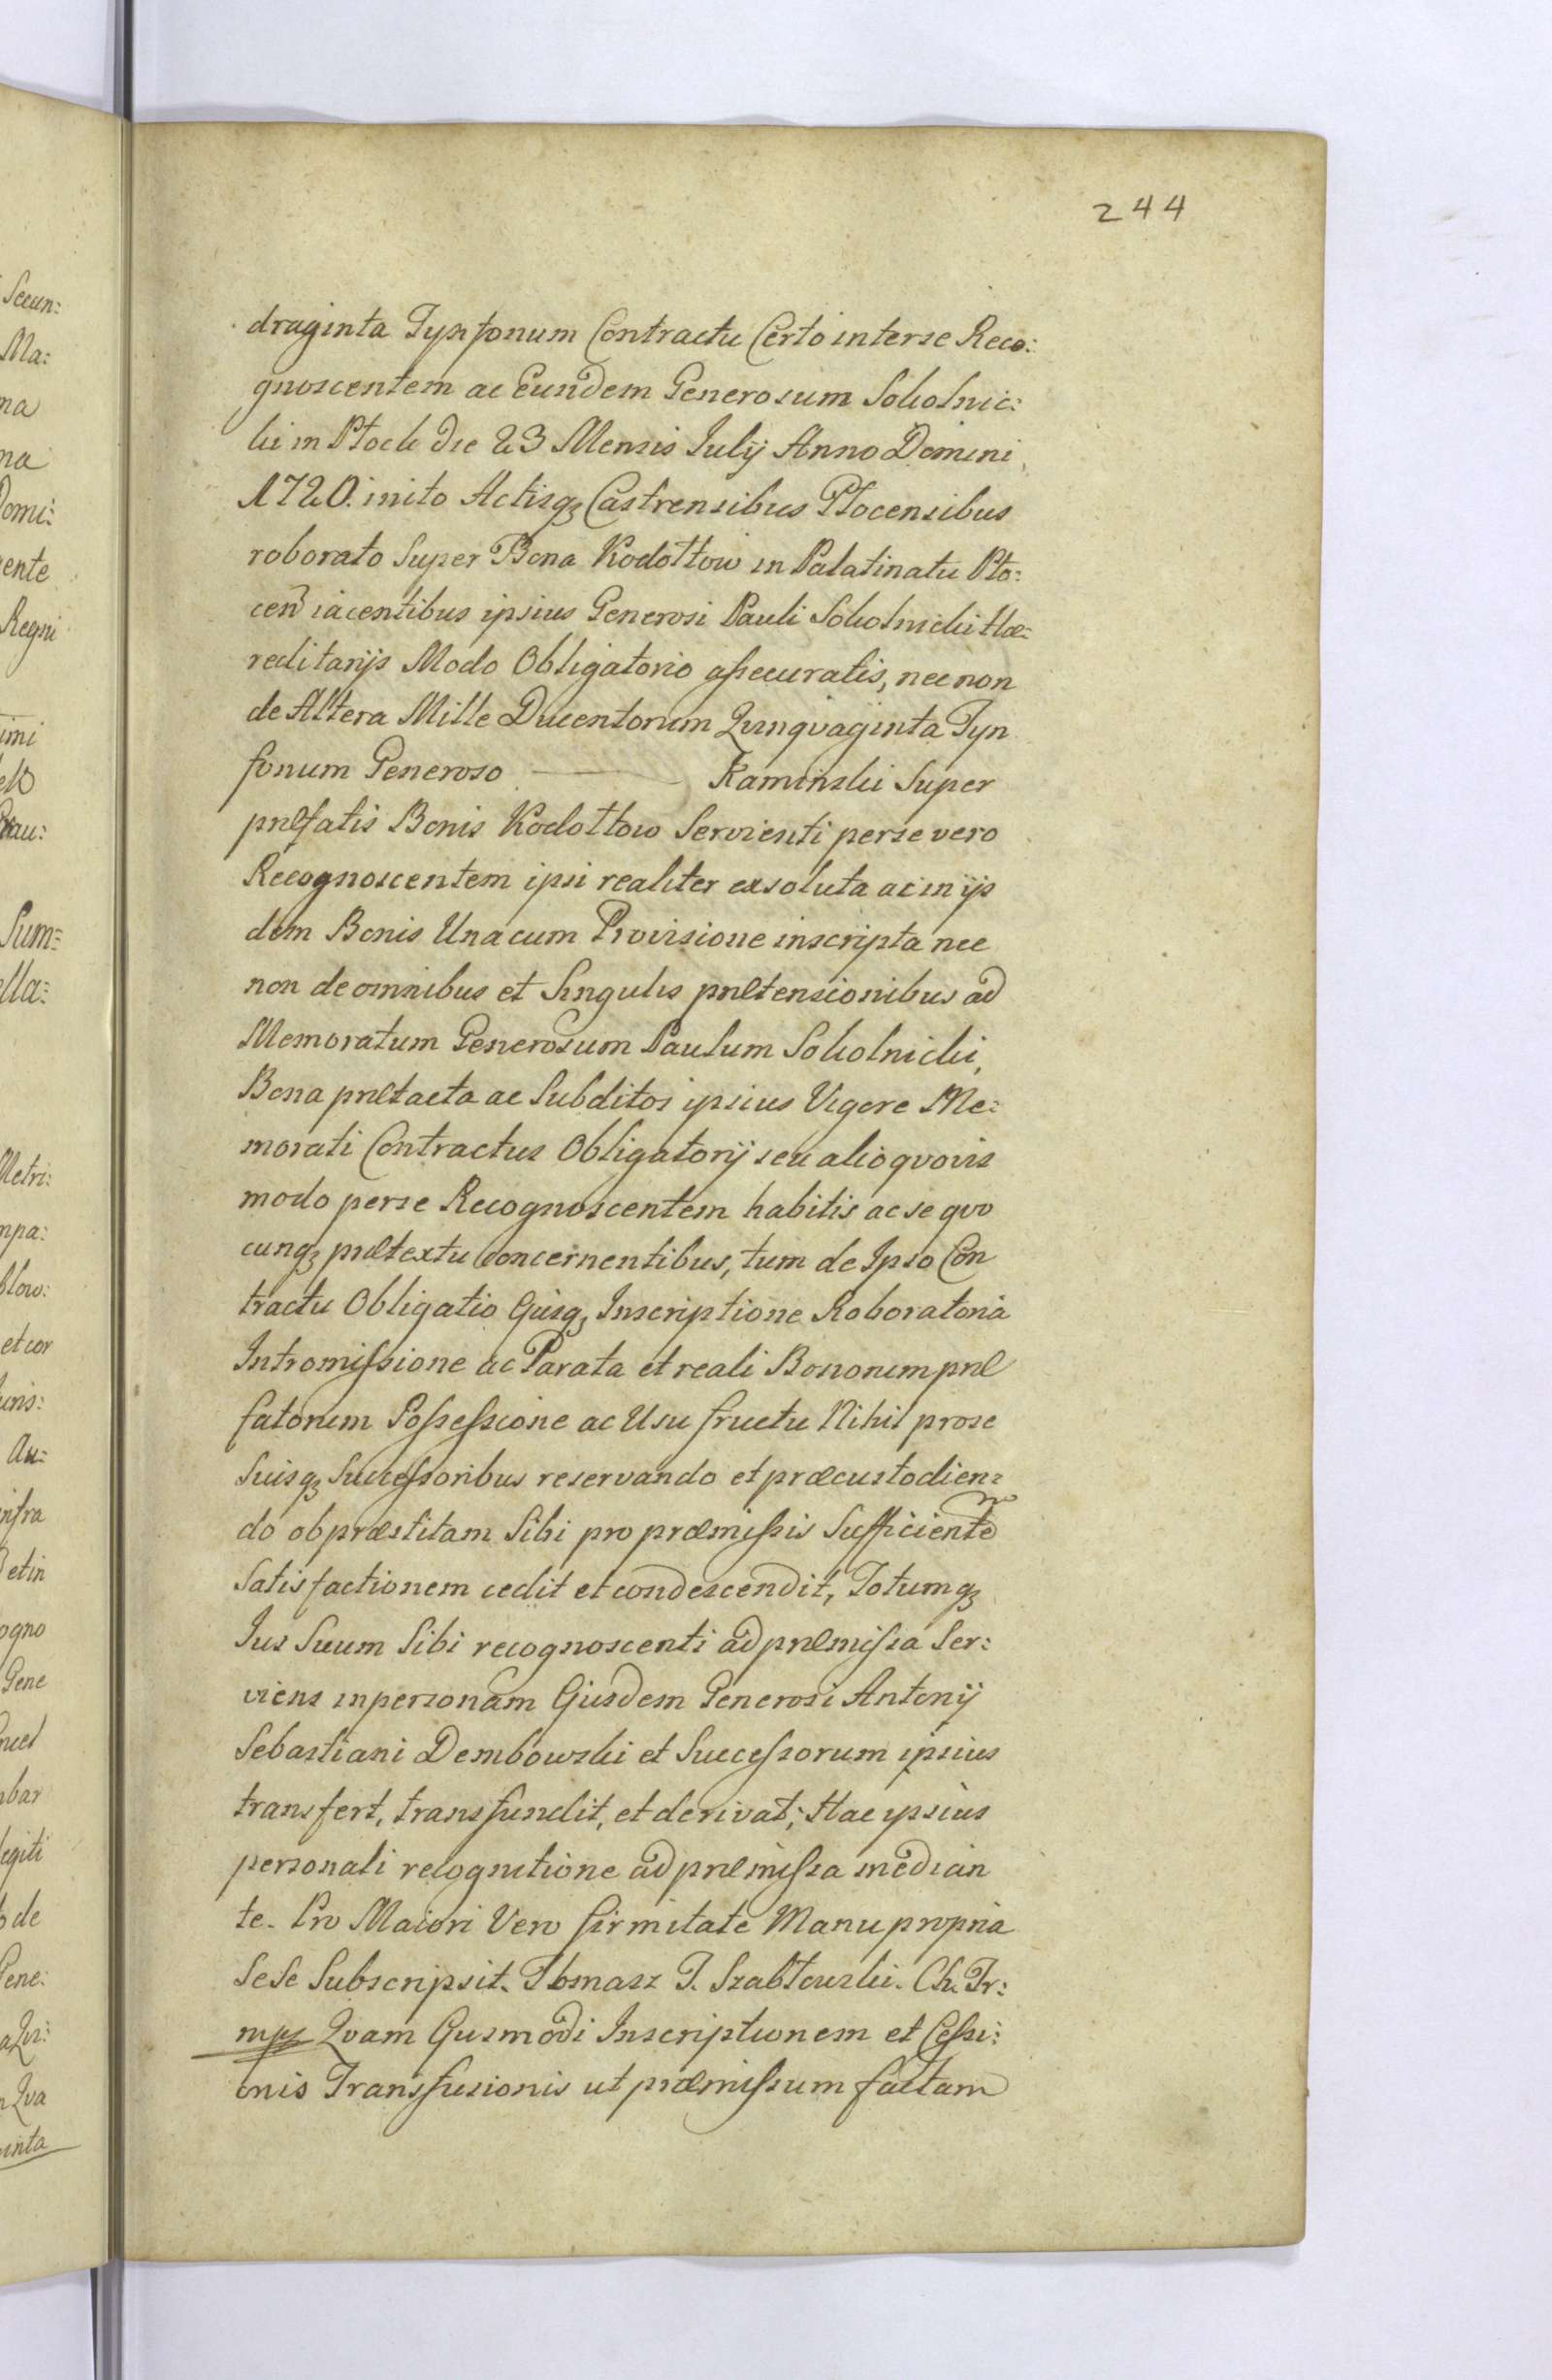 244
draginta Tynfonum Contractu Certo interse Reco:
gnoscentem ac Eundem Generosum Sokolnic:
ki in Płock die 23 Mensis Julij Anno Domini
1720. inito Actisqꝫ Castrensibus Płocensibus
roborato Super Bona Kodłotow in Palatinatu Pło:
cen̄ iacentibus ipsius Generosi Pauli Sokolnicki Hæ:
reditarijs Modo Obligatorio assecuratis, nec non
de Altera Mille Ducentorum Qvinqvaginta Tyn
fonum Generoso ——— Kaminski Super
præfatis Bonis Kodłotow Servienti perse vero
Recognoscentem ipsi realiter exsoluta ac in ijs
dem Bonis Una cum Provisione inscripta nec
non de omnibus et Singulis prætensionibus ad
Memoratum Generosum Paulum Sokolnicki,
Bona prætacta ac Subditos ipsius Vigore Me:
morati Contractus Obligatorij seu alio qvovis
modo perse Recognoscentem habitis ac se qvo
cunqꝫ prætextu concernentibus, tum de Ipso Con
tractu Obligatio Ejusqꝫ Inscriptione Roboratoria
Intromissione ac Parata et reali Bonorum præ
fatorum Possessione ac Usu fructu Nihil prose
Suisqꝫ Successoribus reservando et præcustodien:
do ob præstitam Sibi pro præmissis Sufficientem
Satisfactionem cedit et condescendit, Totumqꝫ
Jus Suum Sibi recognoscenti ad præmissa Ser:
viens in personam Ejusdem Generosi Antonij
Sebastiani Dembowski et Successorum ipsius
transfert, transfundit, et derivat; Hac ipsius
personali recognitione ad præmissa median
te. Pro Maiori Vero firmitate Manu propria
Se Se Subscripsit. Tomasz T. Szabłowski. Ch. Tr:
mp Qvam Ejusmodi Inscriptionem et Cessi:
onis Transfusionis ut præmissum factam